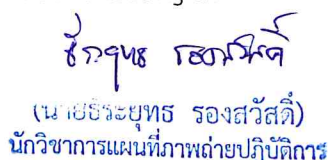 (นายธีระยุทธ รองสวัสดิ์)
นักวิชาการแผนที่ภาพถ่ายปฏิบัติการ